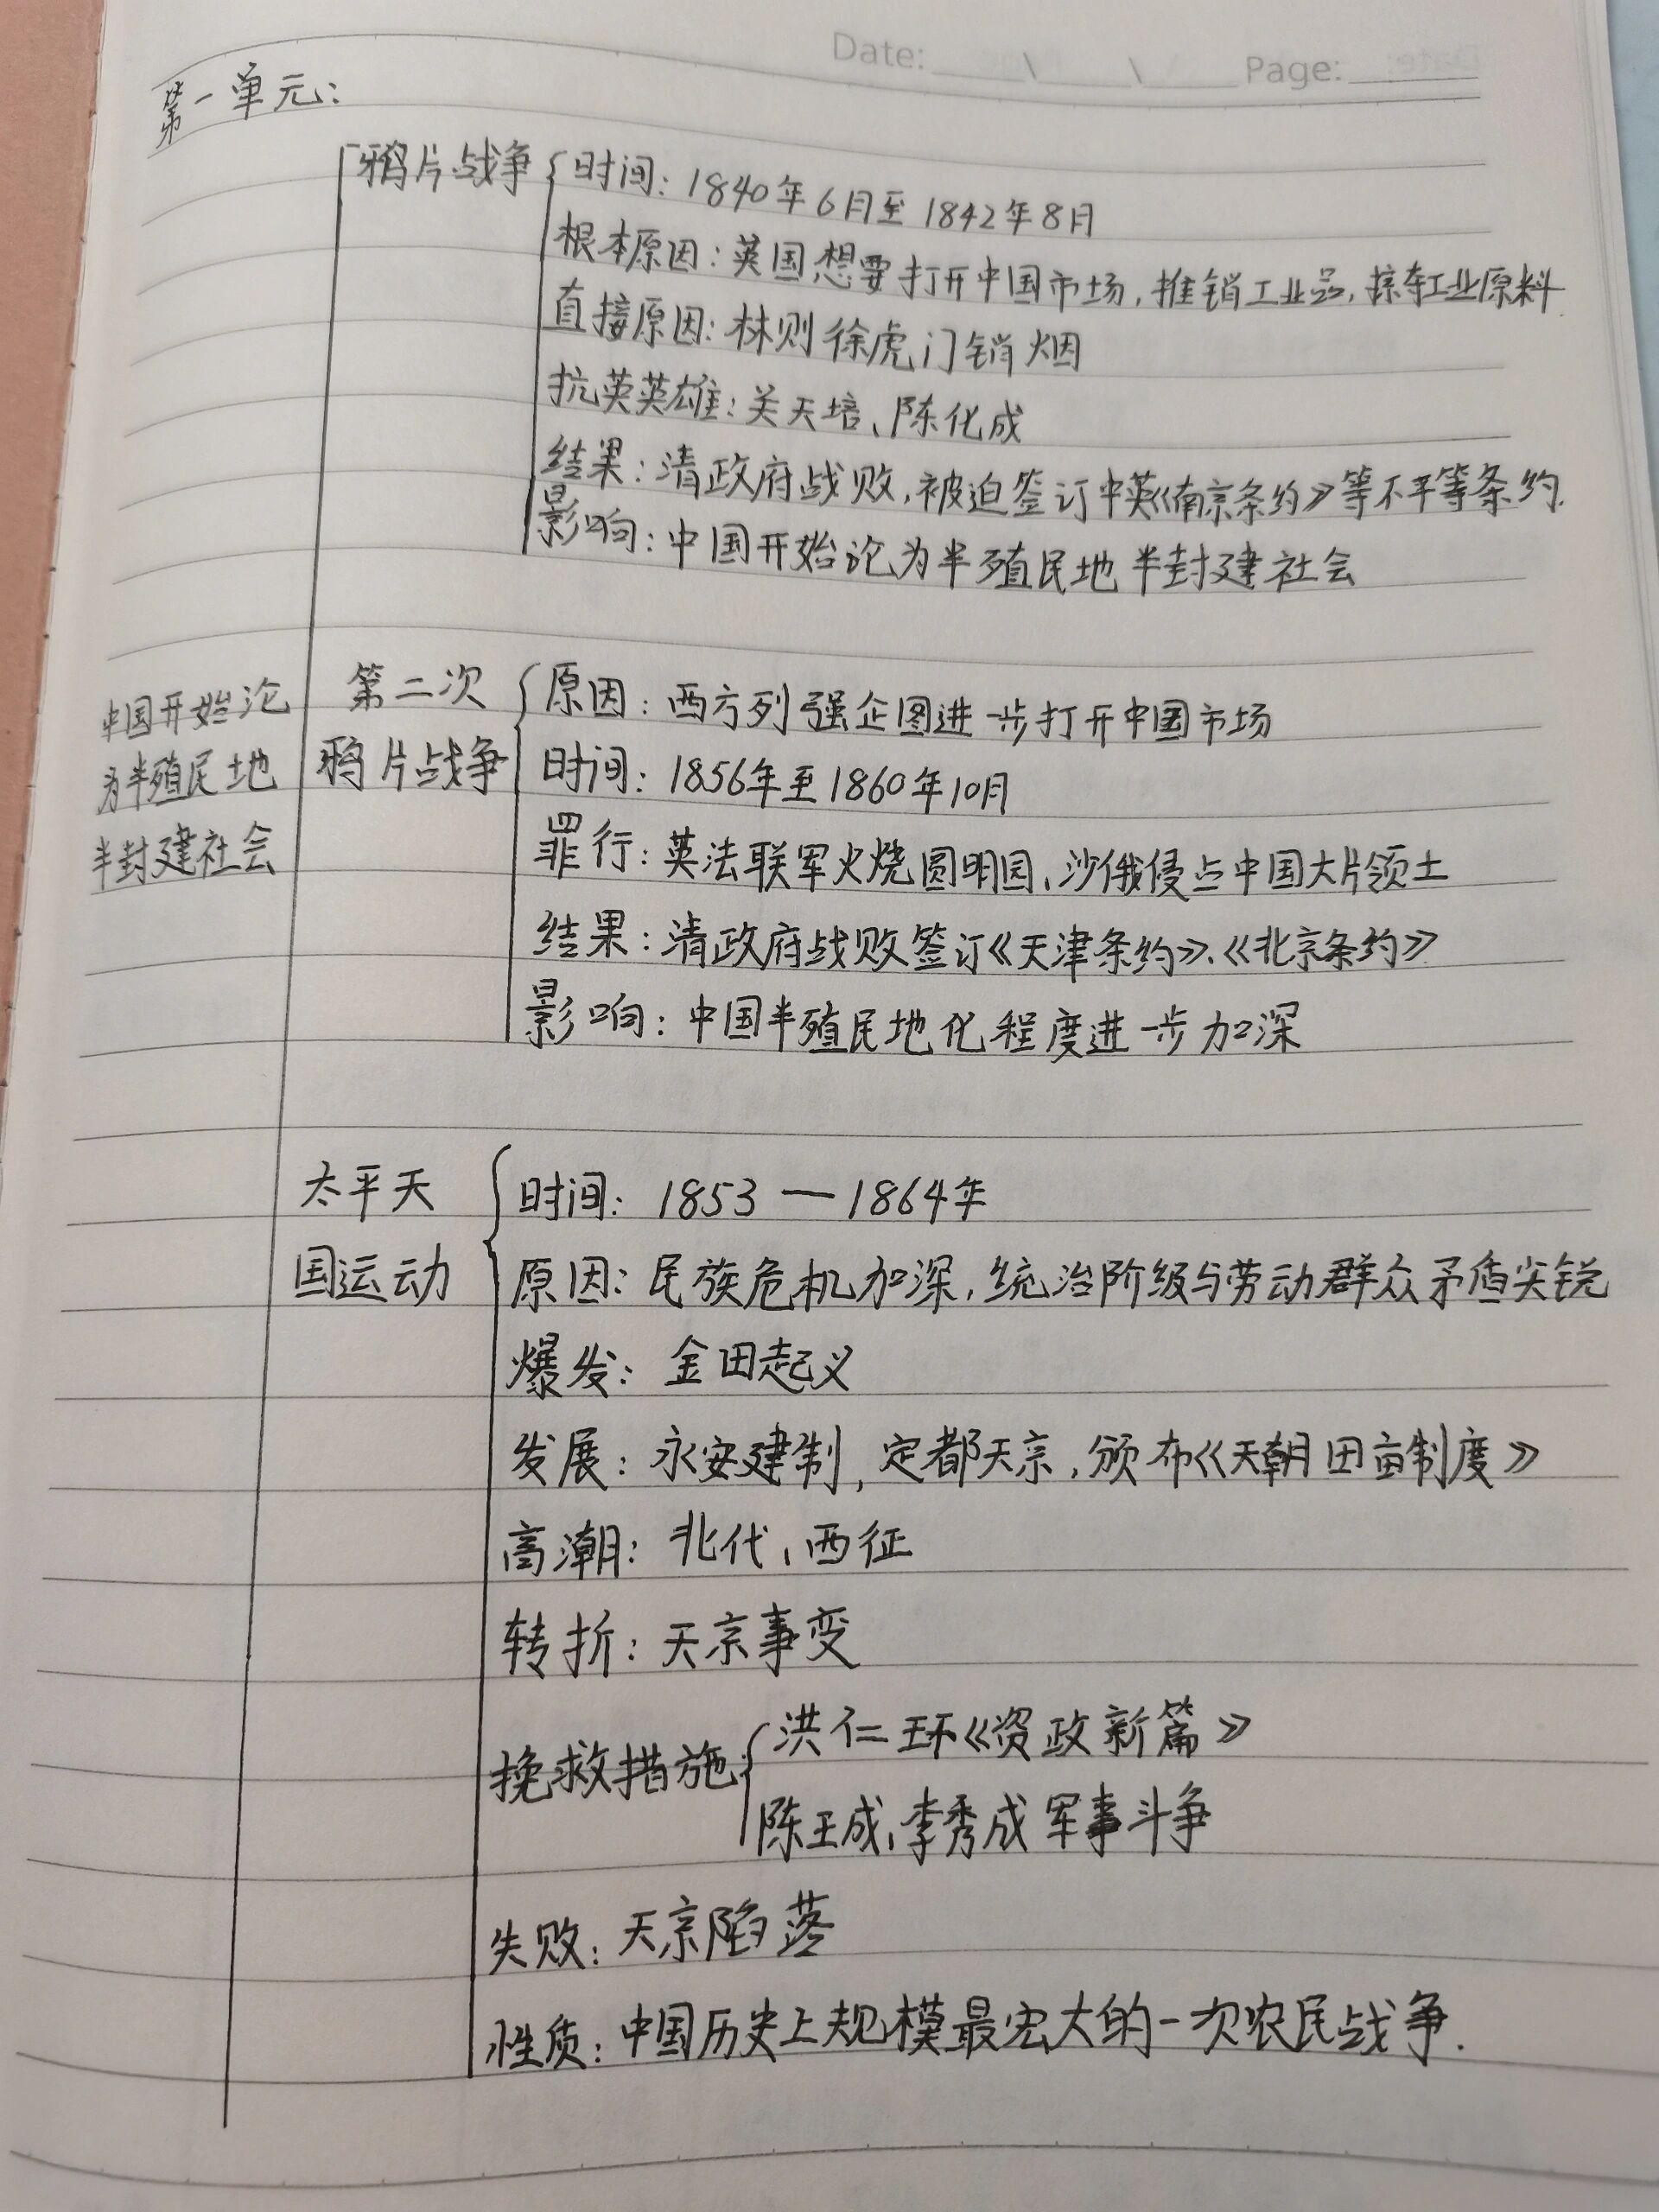 Date: \ \ Page:
第一单元:
鸦片战争 时间: 1840年6月至1842年8月
根本原因: 英国想要打开中国市场, 推销工业品, 掠夺工业原料
直接原因: 林则徐虎门销烟
抗英英雄: 关天培、陈化成
结果: 清政府战败, 被迫签订中英《南京条约》等不平等条约.
影响: 中国开始论为半殖民地半封建社会
中国开始沦
为半殖民地
半封建社会
第二次
鸦片战争
原因: 西方列强企图进一步打开中国市场
时间: 1856年至1860年10月
罪行: 英法联军火烧圆明园、沙俄侵占中国大片领土
结果: 清政府战败签订《天津条约》、《北京条约》
影响: 中国半殖民地化程度进一步加深
太平天
国运动
时间: 1853—1864年
原因: 民族危机加深, 统治阶级与劳动群众矛盾尖锐
爆发: 金田起义
发展: 永安建制, 定都天京, 颁布《天朝田亩制度》
高潮: 北代、西征
转折: 天京事变
挽救措施 洪仁环《资政新篇》
陈王成、李秀成军事斗争
失败: 天京陷落
性质: 中国历史上规模最宏大的一次农民战争.